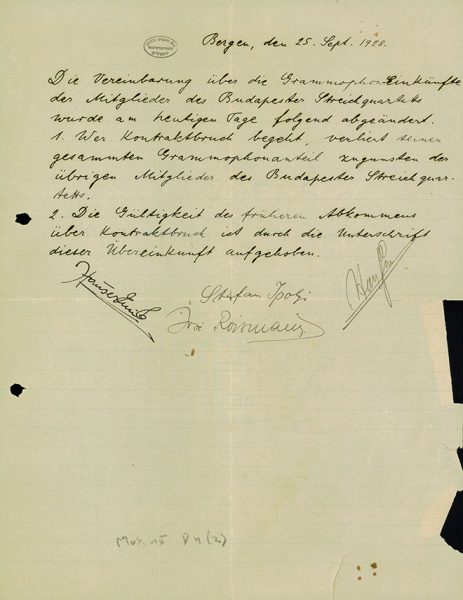 Bergen, den 25. Sept. 1928.
Die Vereinbarung über die Grammophon Einkünfte
der Mitglieder des Budapester Streichquartetts
wurde am heutigen Tage folgend abgeändert.
1. Wer Kontraktbruch begeht, verliert seinen
gesammten Grammophonanteil zugunsten der
übrigen Mitglieder des Budapester Streichquar-
tetts.
2. Die Gültigkeit des früheren Abkommens
über Kontraktbruch ist durch die Unterschrift
dieser Übereinkunft aufgehoben.
Hauser Emil
Stefan Ipolyi
Josi Roismann
Mus. 15 D 4 (2)